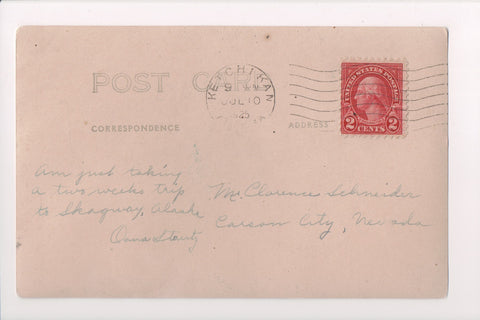 POST CARD
KETCHIKAN
JUL 10
1925
UNITED STATES POSTAGE
2 CENTS 2
CORRESPONDENCE
ADDRESS
Am just taking
a two weeks trip
to Skagway, Alaska
Mr. Clarence Schneider
Carson City, Nevada